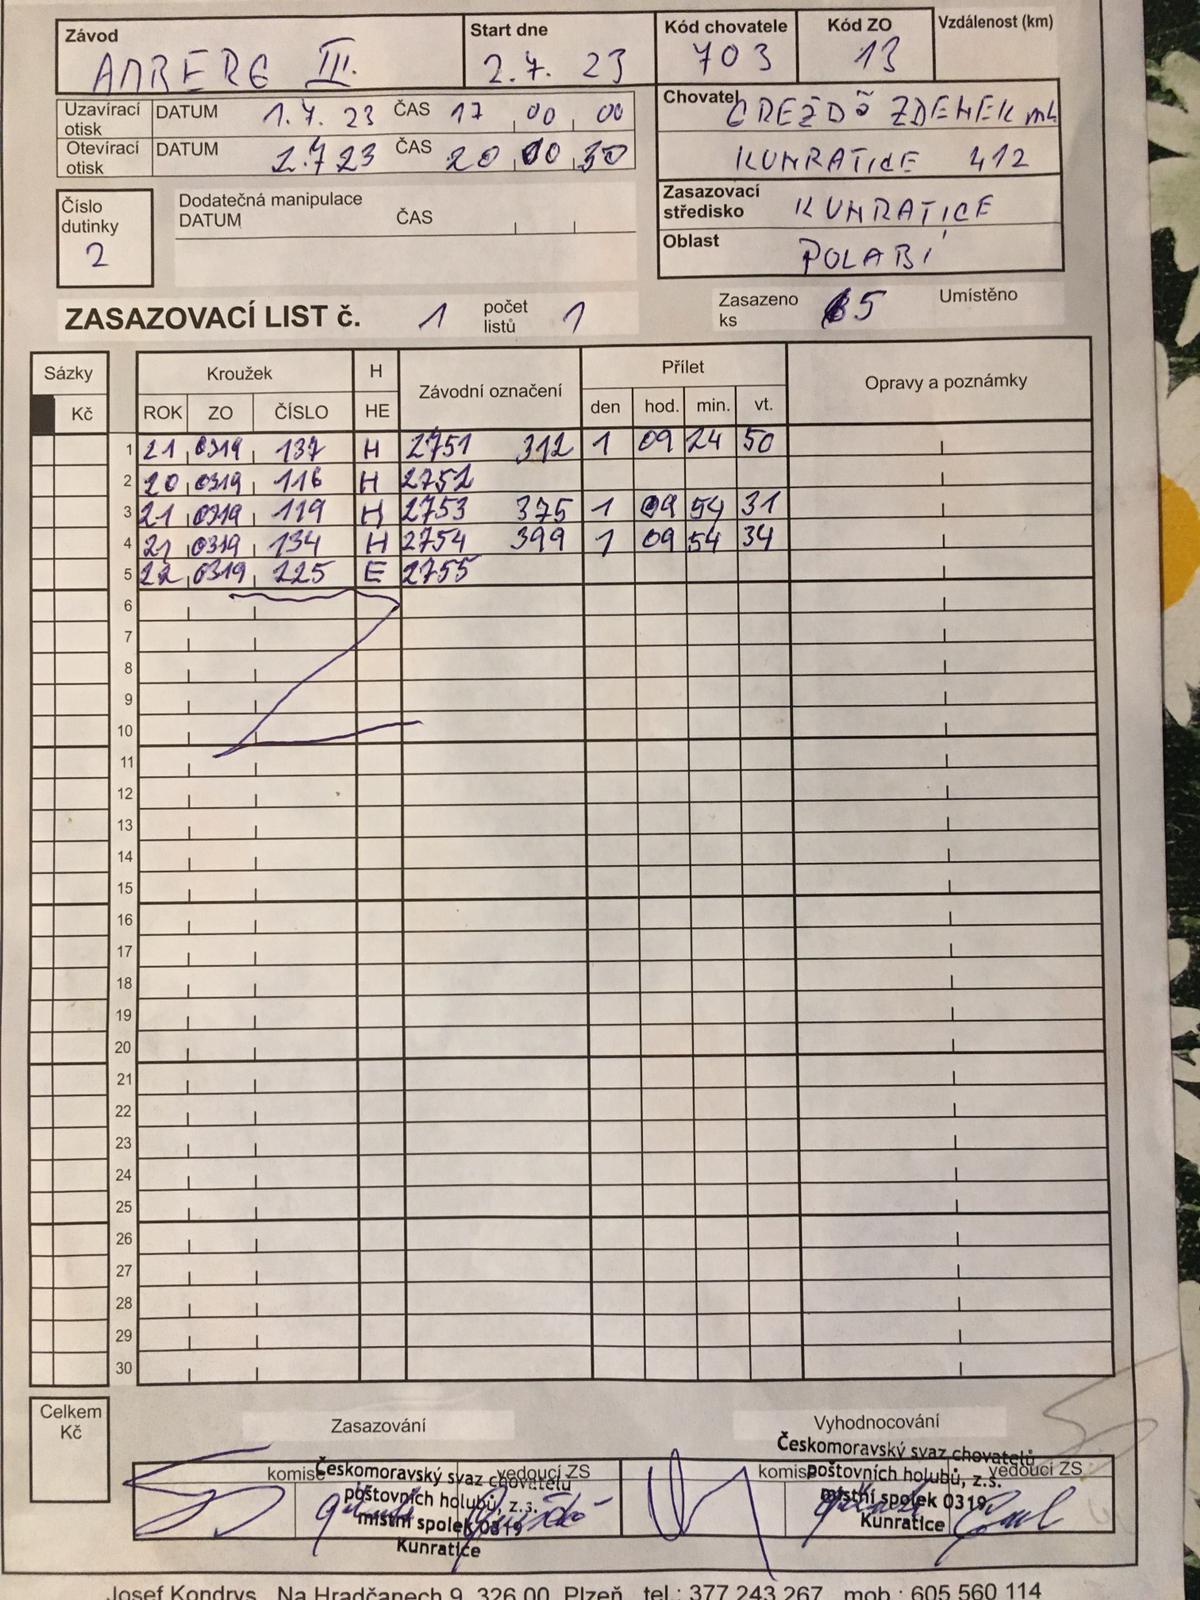 Závod Start dne Kód chovatele Kód ZO Vzdálenost (km)
AMBERG III. 2.7. 23 703 13
Uzavírací otisk DATUM 1.7. 23 ČAS 17 00 00
Otevírací otisk DATUM 2.7 23 ČAS 20 00 30
Chovatel ZDENEK ml.
KUNRATICE 412
Číslo dutinky 2
Dodatečná manipulace
DATUM ČAS
Zasazovací středisko KUNRATICE
Oblast POLABÍ
ZASAZOVACÍ LIST č. 1 počet listů 1 Zasazeno ks 5 Umístěno
Sázky Kroužek H Závodní označení Přílet Opravy a poznámky
Kč ROK ZO ČÍSLO HE den hod. min. vt.
1 21 0319 137 H 2751 312 1 09 24 50
2 20 0319 116 H 2752
3 21 0319 119 H 2753 375 1 09 54 31
4 21 0319 134 H 2754 399 1 09 54 34
5 22 0319 225 E 2755
6
7
8
9
10
11
12
13
14
15
16
17
18
19
20
21
22
23
24
25
26
27
28
29
30
Celkem Kč
Zasazování Vyhodnocování
komise vedoucí ZS komise vedoucí ZS
Českomoravský svaz chovatelů
poštovních holubů, z.s.
místní spolek 0319
Kunratice
Českomoravský svaz chovatelů
poštovních holubů, z.s.
místní spolek 0319
Kunratice
Josef Kondrys, Na Hradčanech 9, 326 00 Plzeň tel.: 377 243 267 mob.: 605 560 114